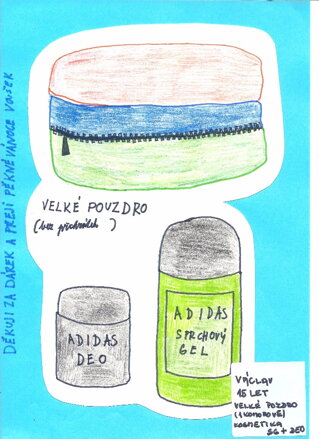 DĚKUJI ZA DÁREK A PŘEJI PĚKNÉ VÁNOCE VOUŠEK
VELKÉ POUZDRO
(bez přihrádek )
ADIDAS
DEO
ADIDAS
SPRCHOVÝ
GEL
VÁCLAV
15 LET
VELKÉ POZDRO
(1 KOMOROVÉ)
KOSMETIKA
SG + DEO